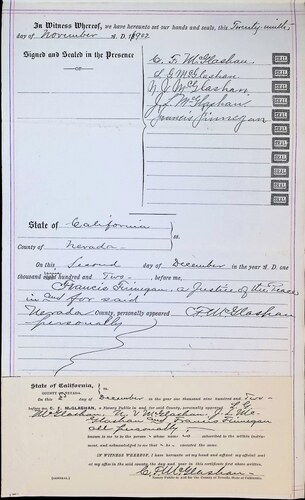 In Witness Whereof, we have hereunto set our hands and seals, this Twenty-ninth,
day of November A. D. 1902
Signed and Sealed in the Presence
of
C. F. McGlashan
N. V. McGlashan
J. L. McGlashan
Francis Finnegan
SEAL
SEAL
SEAL
SEAL
SEAL
SEAL
SEAL
SEAL
SEAL
SEAL
SEAL
State of California
County of Nevada
ss.
On this Second day of December in the year A. D. one
thousand hundred and Two before me,
Francis Finnegan a Justice of the Peace
in and for said
Nevada County, personally appeared C. F. McGlashan
personally
State of California,
COUNTY OF NEVADA.
ss.
On this 2d day of December in the year one thousand nine hundred and Two
before me C. F. McGLASHAN, a Notary Public in and for said County, personally appeared
McGlashan, N. V. McGlashan, J. L. Mc
Glashan and Francis Finnegan
all personally
known to me to be the person whose name subscribed to the within instrument
and acknowledged to me that he executed the same.
IN WITNESS WHEREOF, I have hereunto set my hand and affixed my official seal
at my office in said county the day and year in this certificate first above written.
C. F. McGlashan
Notary Public in and for the County of Nevada, State of California.